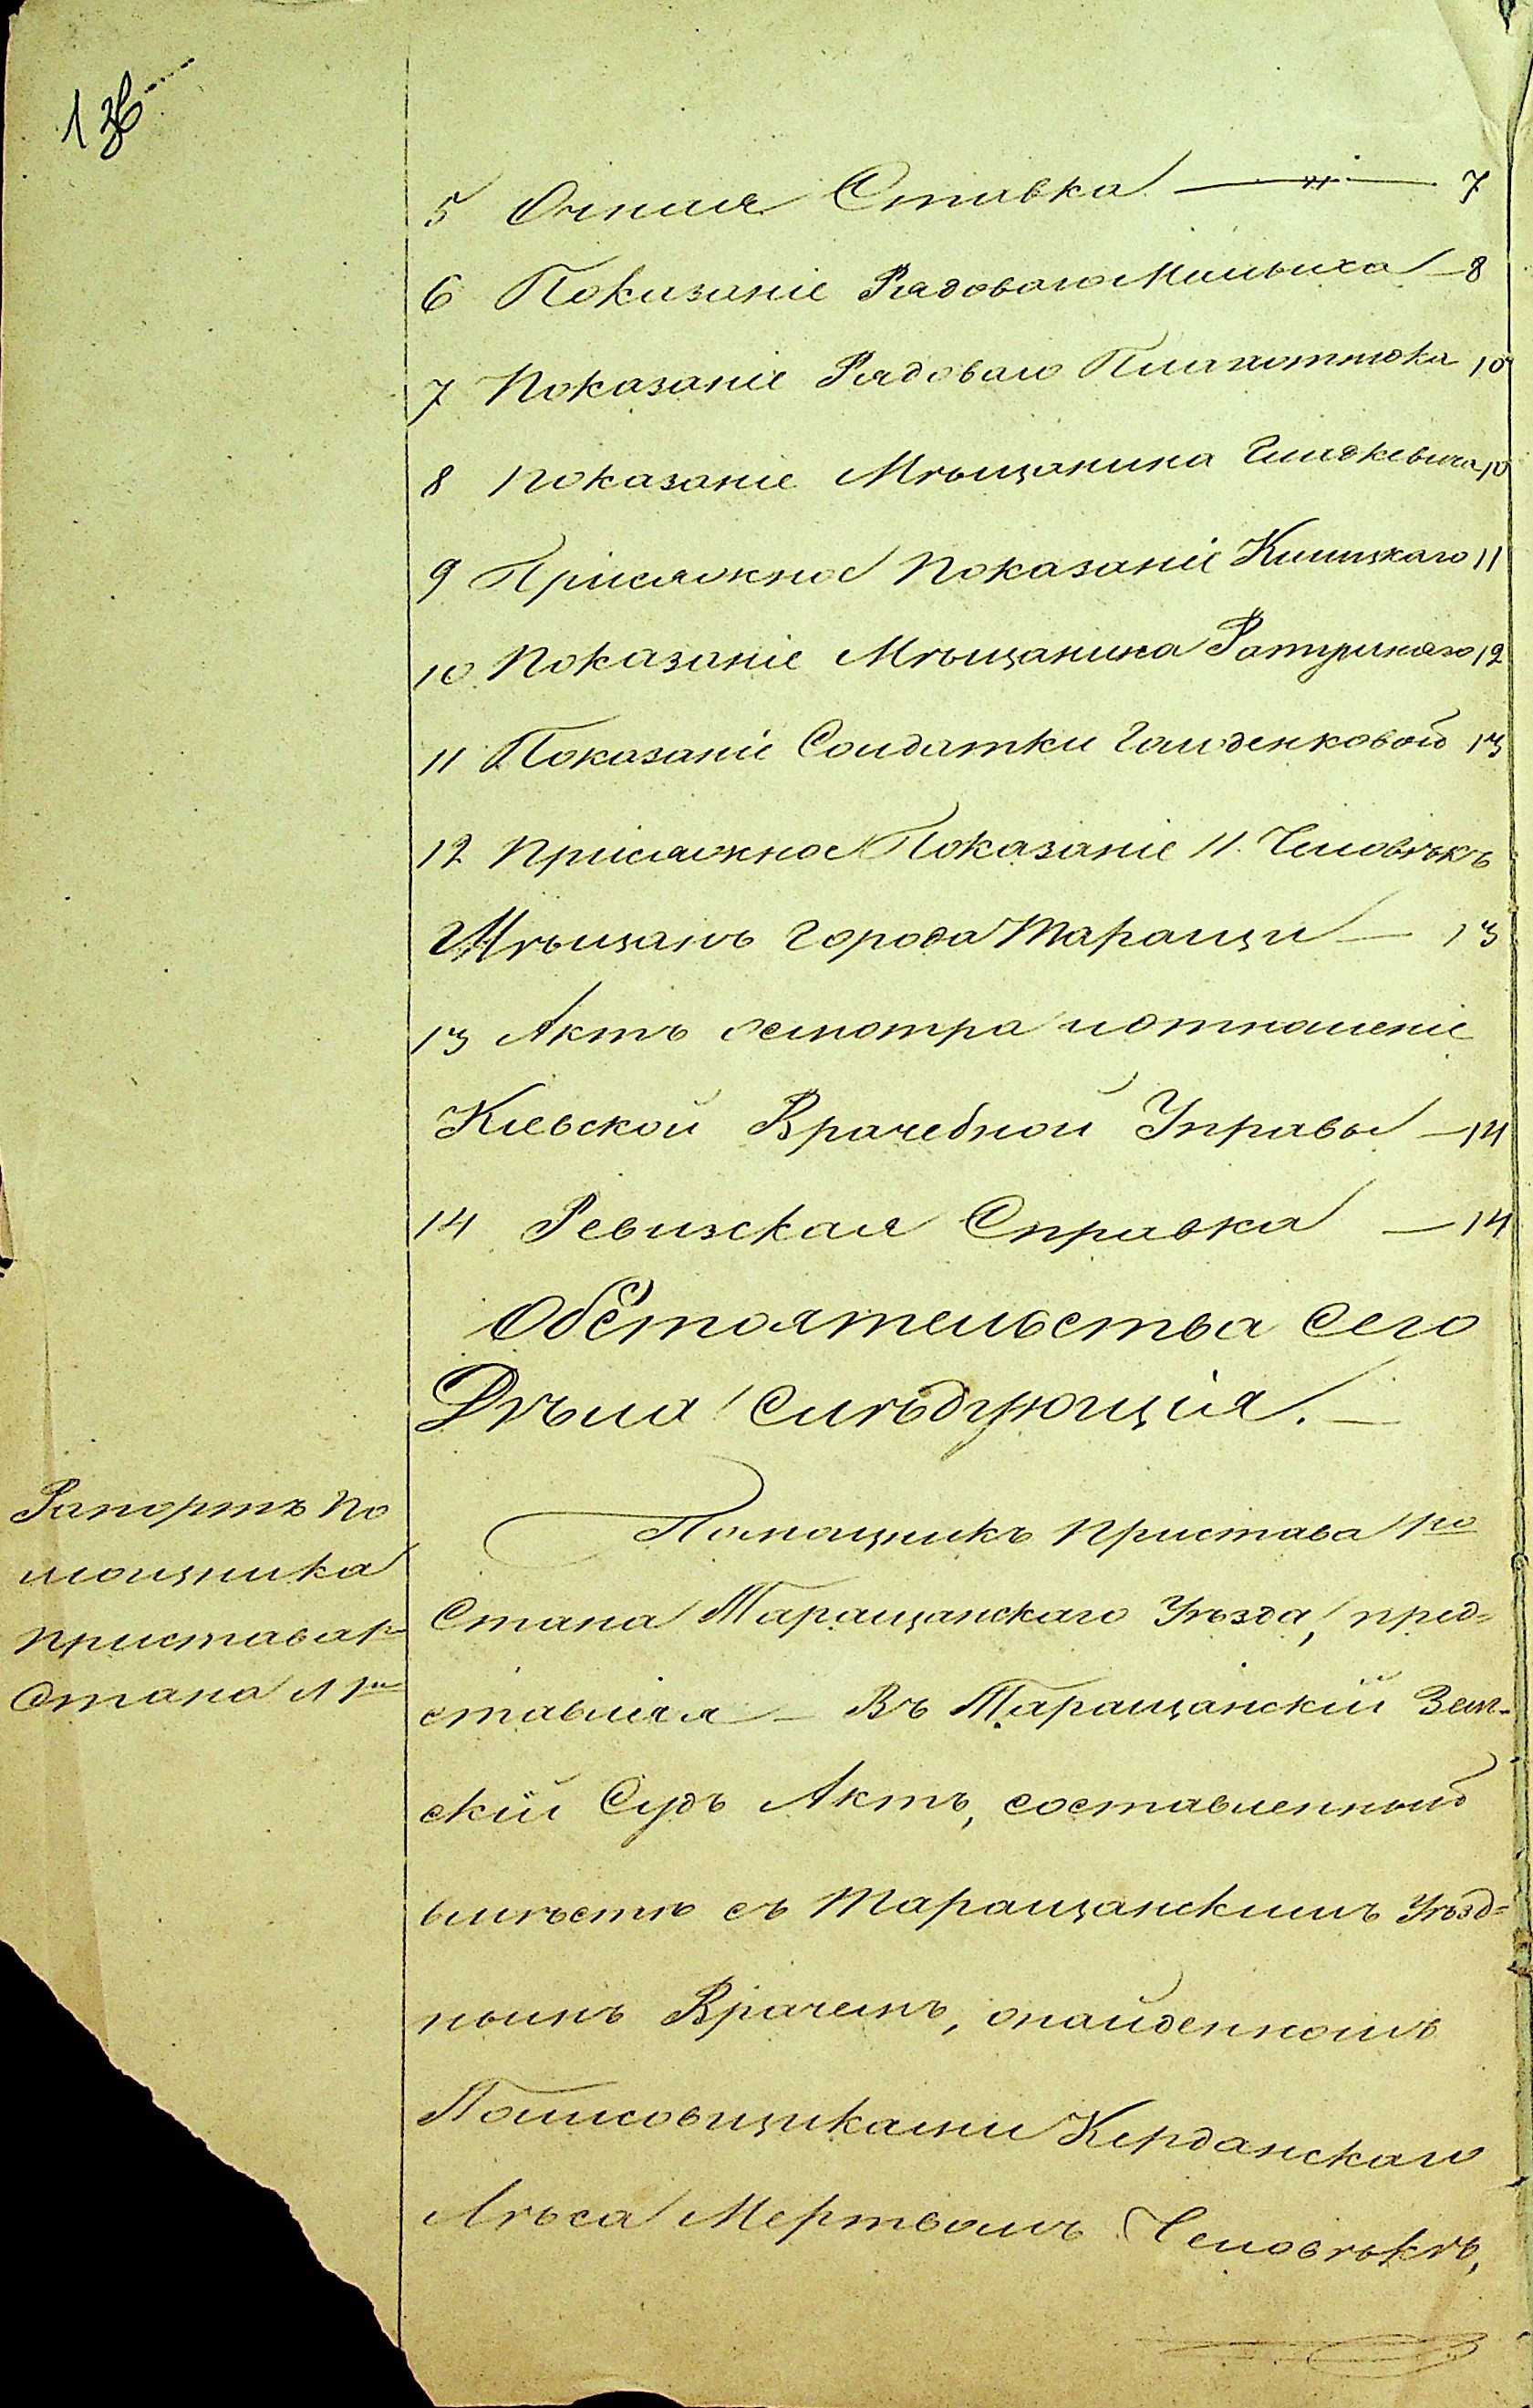 136
5 Очная Ставка — " — 7
6 Показаніе Рядоваго Мельника — 8
7 Показаніе Рядоваго 10
8 Показаніе Мѣщанина 10
9 Присяжное Показаніе 11
10 Показаніе Мѣщанина 12
11 Показаніе Солдатки Гайденковой 13
12 Присяжное Показаніе 11. Человѣкъ
Мѣщанъ города Таращи — 13
13 Актъ осмотра и отношеніе
Кіевской Врачебной Управы — 14
14 Ревизская Справка — 14
Обстоятельства сего
Дѣла слѣдующія. —
Рапортъ По
мощника
Пристава
Стана
Помощникъ Пристава 1го
Стана Таращанскаго Уѣзда, пред=
ставляя — Въ Таращанскій Зем-
скій Судъ Актъ, составленный
вмѣстѣ съ Таращанскимъ Уѣзд=
нымъ Врачемъ, о найденномъ
Полисовщиками Керданскаго
Лѣса Мертвомъ Человѣкѣ,